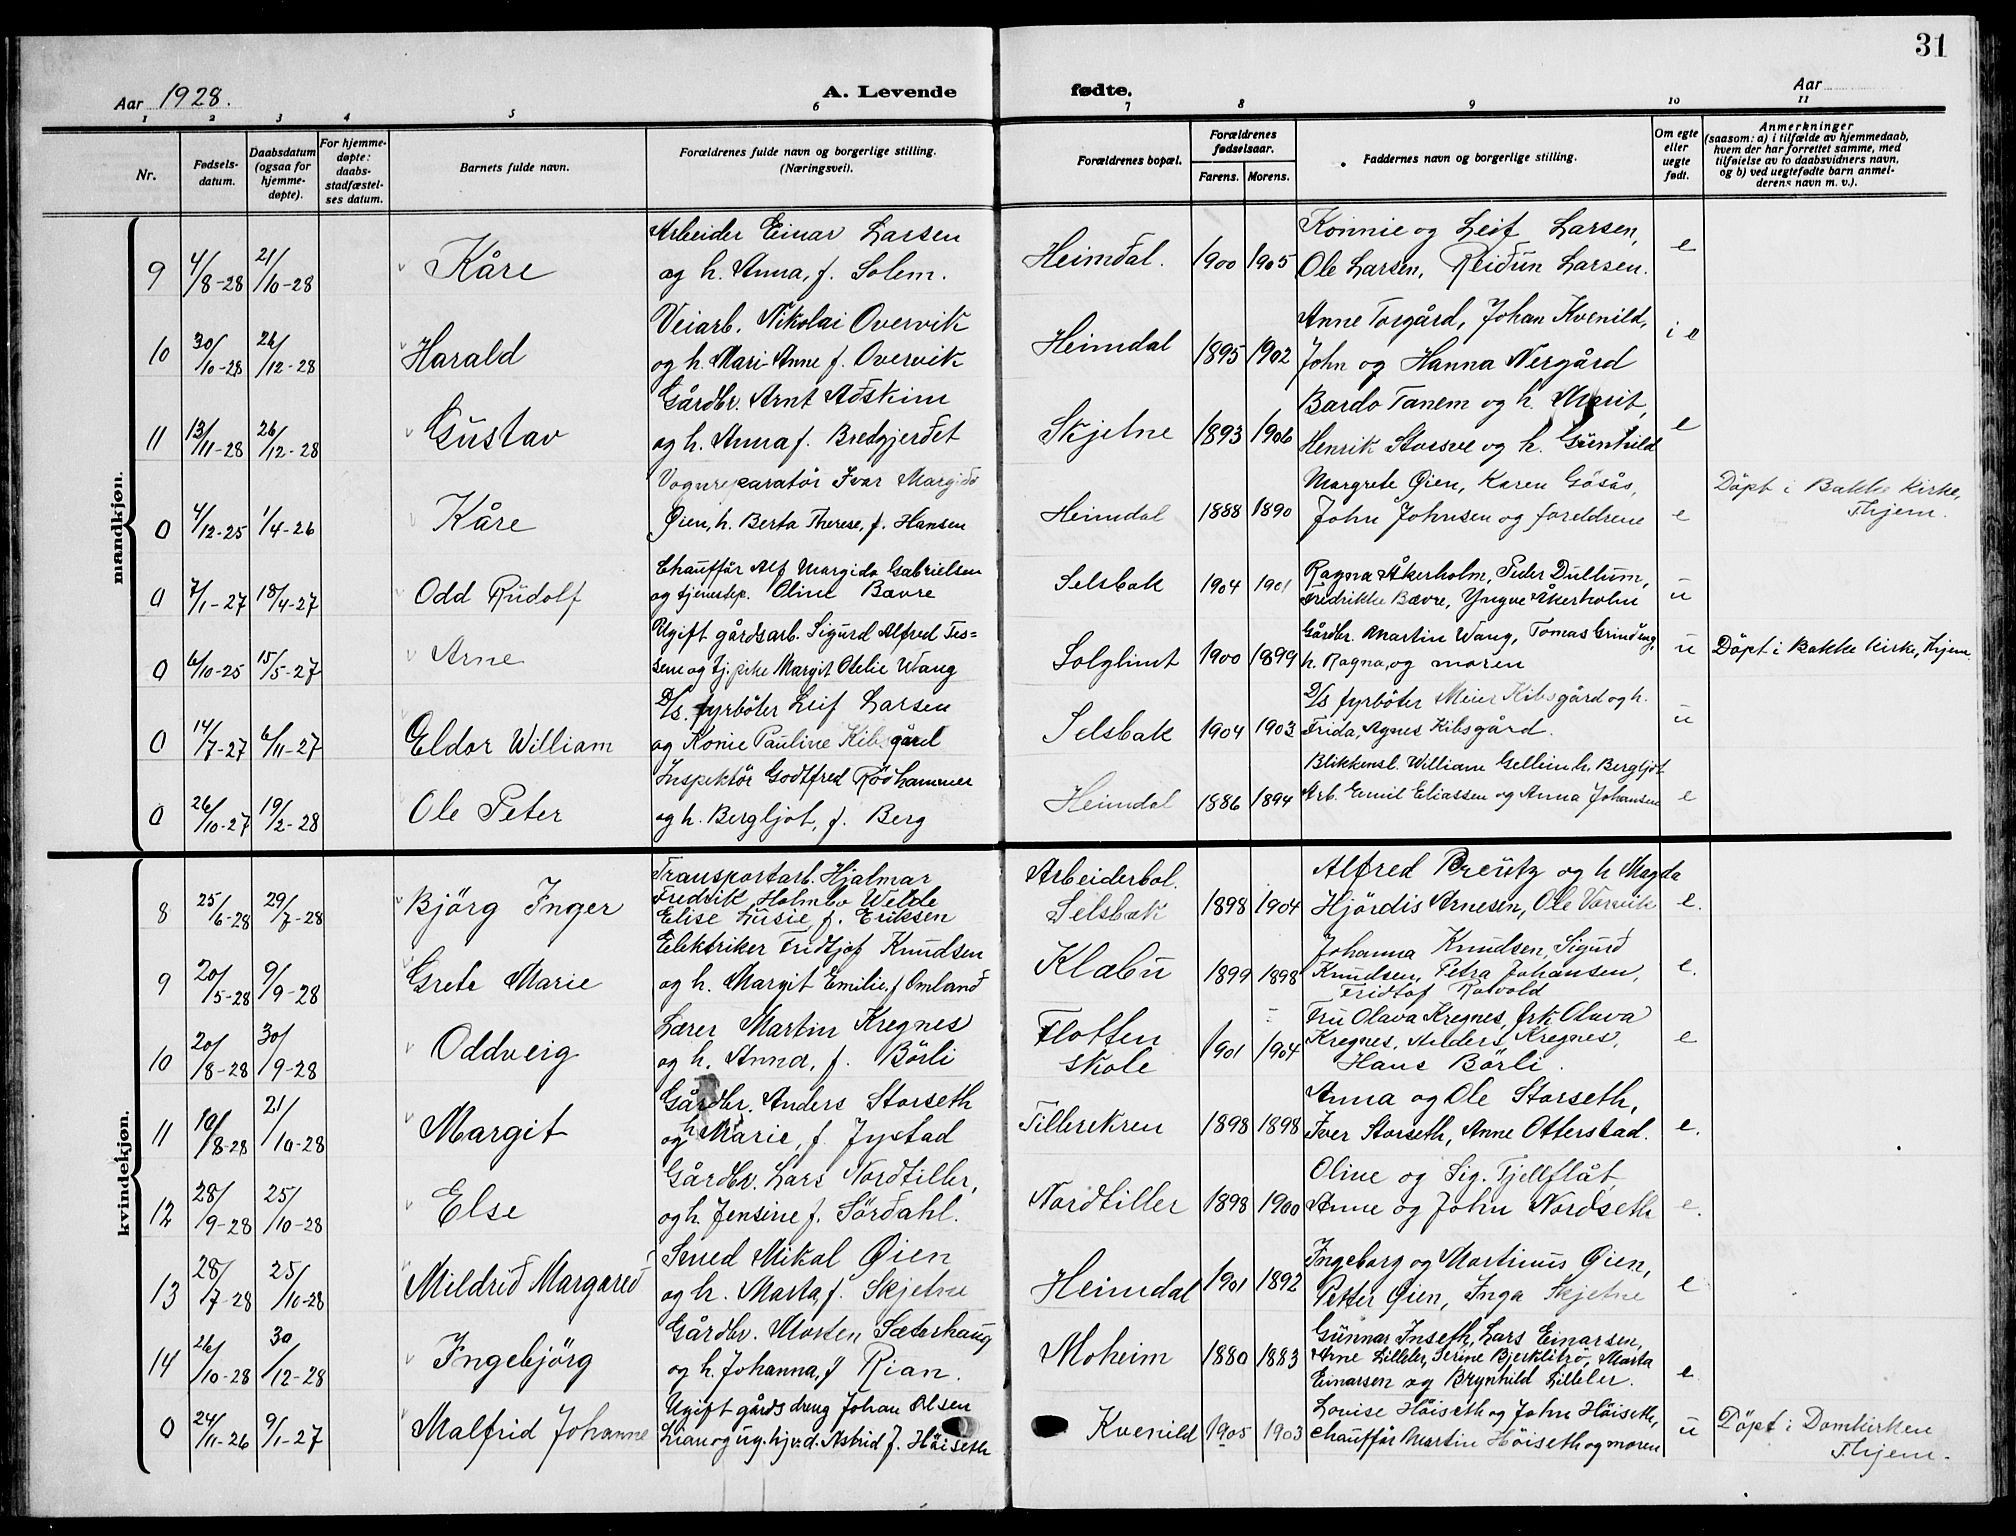 31
Aar 1928. A. Levende fødte. Aar
1 2 3 4 5 6 7 8 9 10 11
Nr. Fødsels-datum. Daabsdatum (ogsaa for hjemme-døpte). For hjemme-døpte: daabs-stadfæstel-ses datum. Barnets fulde navn. Forældrenes fulde navn og borgerlige stilling. (Næringsvei). Forældrenes bopæl. Forældrenes fødselsaar. Farens. Morens. Faddernes navn og borgerlige stilling. Om egte eller uegte født. Anmerkninger (saasom: a) i tilfælde av hjemmedaab, hvem der har forrettet samme, med tilføielse av to daabsvidners navn, og b) ved uegtefødte barn anmel-derens navn m. v.).
mandkjøn.
Arbeider Einar Larsen Konnie og Leif Larsen,
9 4/8-28 21/10-28 Kåre og h. Anna, f. Solem. Heimdal. 1900 1905 Ole Larsen, Reidun Larsen. e
Veiarb. Nikolai Overvik Anne Torgård, Johan Kvenild,
10 30/10-28 26/12-28 Harald og h. Mari-Anne f. Overvik Heimdal 1895 1902 John og Hanna Nergård i e
Gårdbr. Arnt Adskim Bardo Tanem og h. Marit,
11 13/11-28 26/12-28 Gustav og h. Anna f. Bredgjerdet Skjetne 1893 1906 Henrik Storsve og h. Gunhild e
Vognreparatør Ivar Margido Margrete Øien, Karen Gåsås, Döpt i Bakke Kirke,
0 4/12-25 1/4-26 Kåre Øien, h. Berta Therese, f. Hansen Heimdal 1888 1890 John Johnsen og foreldrene e Thjem.
Chauffør Alf Margido Gabrielsen Ragna Åkerholm, Peder Dullum,
0 7/1-27 18/4-27 Odd Rudolf og tjenestep. Oline Bavre Selsbak 1904 1901 Fredrikke Bævre, Yngve Åkerholm u
Ugift gårdsarb. Sigurd Alfred Tes= Gårdbr. Martin Wang, Tomas Grindeng,
0 6/10-25 15/5-27 Arne sem og tj. pike Margit Otelie Wang Solglimt 1900 1899 h. Ragna, og moren u Döpt i Bakke Kirke, Thjem.
D/S. fyrböter Leif Larsen D/S fyrböter Meier Kibsgård og h.
0 14/7-27 6/11-27 Eldor William og Konie Pauline Kibsgård Selsbak 1904 1903 Frida, Agnes Kibsgård. u
Inspektör Godtfred Rödhammer Blikkensl. William Gellein h. Bergljot
0 26/10-27 19/2-28 Ole Peter og h. Bergljot, f. Berg Heimdal 1886 1894 Arb. Emil Eliassen og Anna Johansen e
kvindekjøn.
Transportarb. Hjalmar Arbeiderbol. Alfred Preutz og h Magda
8 25/6-28 29/7-28 Björg Inger Fredrik Holmbo Welde Selsbak 1898 1904 Hjördis Arnesen, Ole Varvik e.
Elise Lusie f. Eriksen
Elektriker Fridtjof Knudsen Johanna Knudsen, Sigurd
9 20/5-28 9/9-28 Grete Marie og h. Margit Emilie, f. Omland Klæbu 1899 1898 Knudsen, Petra Johansen, e.
Fridtof Rotvold
Lærer Martin Kregnes Flotten Fru Olava Kregnes, frk Olava
10 20/8-28 30/9-28 Oddveig og h. Anna, f. Börli skole 1901 1904 Kregnes, Anders Kregnes, e
Hans Börli.
Gårdbr. Anders Storseth Anna og Ole Storseth,
11 10/8-28 21/10-28 Margit og h Marie, f. Jystad Tillerekren 1898 1898 Iver Storseth, Anne Otterstad. e.
Gårdbr. Lars Nordtiller, Oline og Sig. Fjellflåt
12 28/9-28 25/10-28 Else og h. Jensine f. Sördahl. Nordtiller 1898 1900 Anne og John Nordseth e.
Smed Mikal Øien Ingeborg og Martinus Øien,
13 28/7-28 25/10-28 Mildrid Margared og h. Marta, f. Skjetne Heimdal 1901 1892 Petter Øien, Inga Skjetne e
Gårdbr. Morten Sæterhaug Gunnar Inseth, Lars Einarsen,
14 26/10-28 30/12-28 Ingebjörg og h. Johanna, f Rian. Moheim 1880 1883 Arne Lilleler, Serine Bjerklitrö, Marta
Einarsen og Brynhild Lilleler. e
Ugift gårdsdreng Johan Olsen Louise Höiseth og John Höiseth,
0 24/11-26 9/1-27 Malfrid Johanne Lian og ug. hjv. d. Astrid J. Höiseth Kvenild 1905 1903 chauffør Martin Höiseth og moren u Döpt i Domkirken
Thjem.